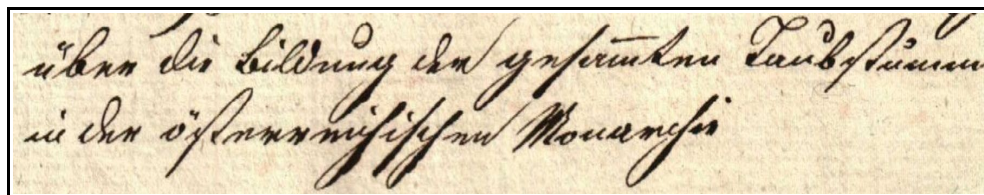 über die Bildung der gesam̅ten Taubstumm
in der österreichischen Monarchie